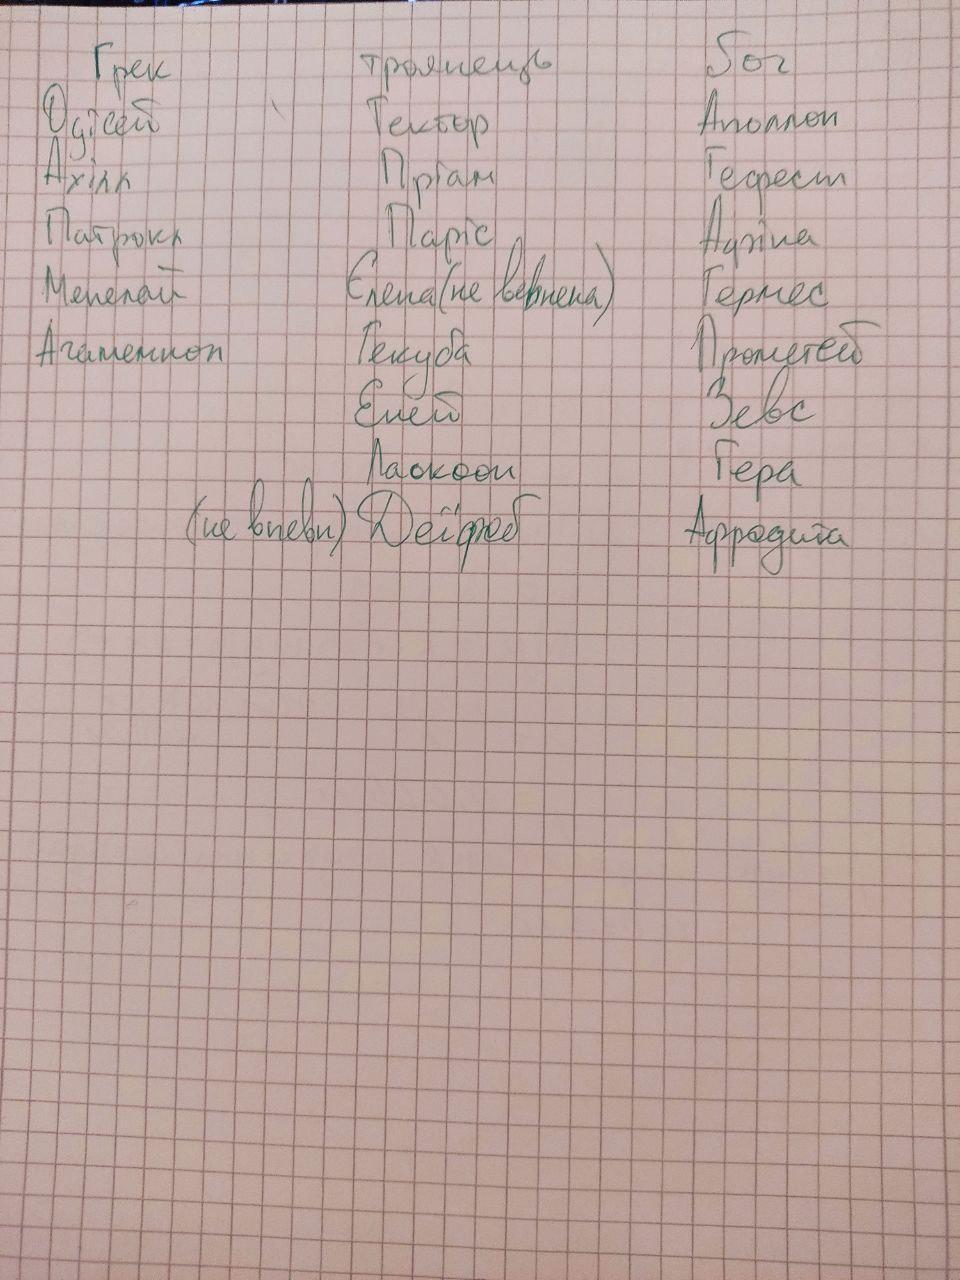 Грек троянець Бог
Одісей Гектор Аполлон
Ахілл Пріам Гефест
Патрокл Паріс Афіна
Менелай Єлена (не вевнена) Гермес
Агамемнон Гекуба Прометей
Еней Зевс
Лаокоон Гера
(не впевн) Деїфоб Афродита